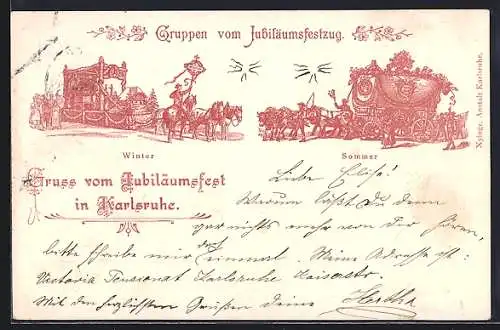 Gruppen vom Jubiläumsfestzug.
Winter
Sommer
Xylogr. Anstalt Karlsruhe.
Gruss vom Jubiläumsfest
in Karlsruhe.
Liebe Elise!
Warum läßt Du denn
gar nichts mehr von Dir hören,
bitte schreibe mir doch einmal. Meine Adresse ist:
Victoria Pensionat Karlsruhe Kaiserstr.
Mit den herzlichsten Grüßen Deine Hertha